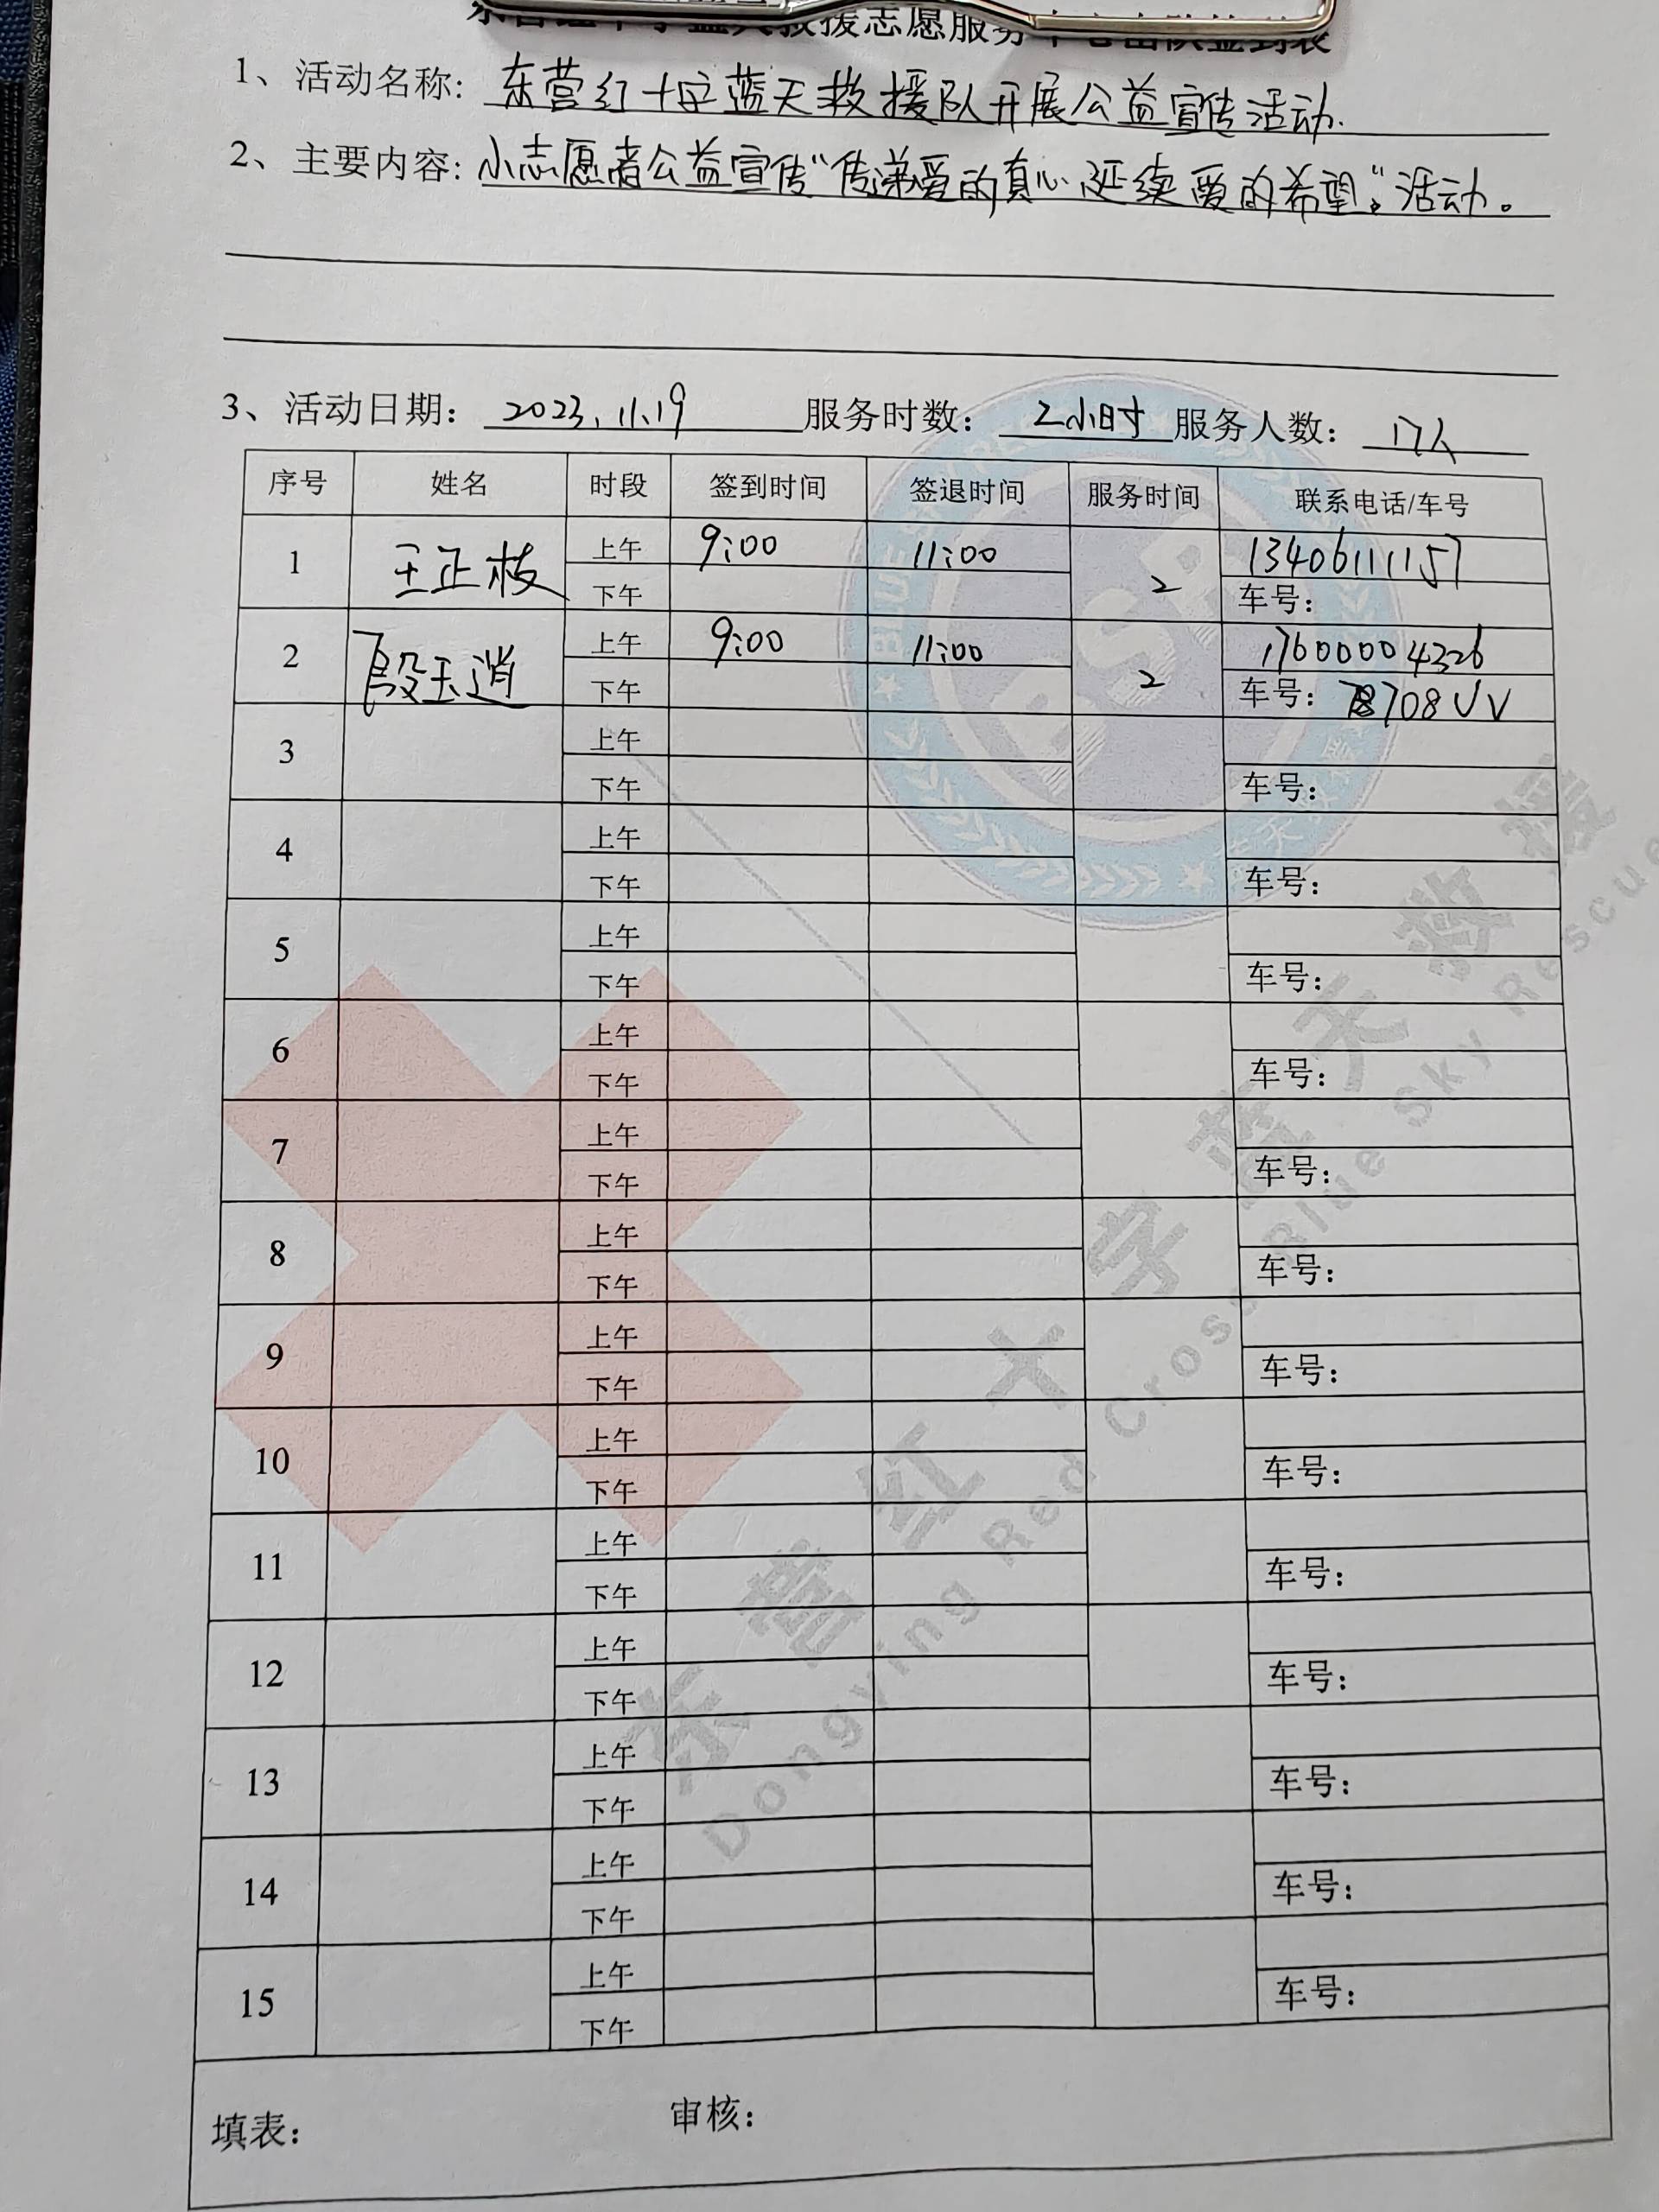 东营红十字蓝天救援志愿服务中心出队签到表
1、活动名称: 东营红十字蓝天救援队开展公益宣传活动.
2、主要内容: 小志愿者公益宣传“传递爱的真心 延续爱的希望。”活动。
3、活动日期: 2023.11.19 服务时数: 2小时 服务人数: 17人
序号 姓名 时段 签到时间 签退时间 服务时间 联系电话/车号
1 王正枝 上午 9:00 11:00 2 13406111157
下午 车号:
2 段玉逍 上午 9:00 11:00 2 17600004326
下午 车号: 708UV
3 上午
下午 车号:
4 上午
下午 车号:
5 上午
下午 车号:
6 上午
下午 车号:
7 上午
下午 车号:
8 上午
下午 车号:
9 上午
下午 车号:
10 上午
下午 车号:
11 上午
下午 车号:
12 上午
下午 车号:
13 上午
下午 车号:
14 上午
下午 车号:
15 上午
下午 车号:
填表: 审核:
BSR
东营红十字蓝天救援
Dongying Red Cross Blue Sky Rescue